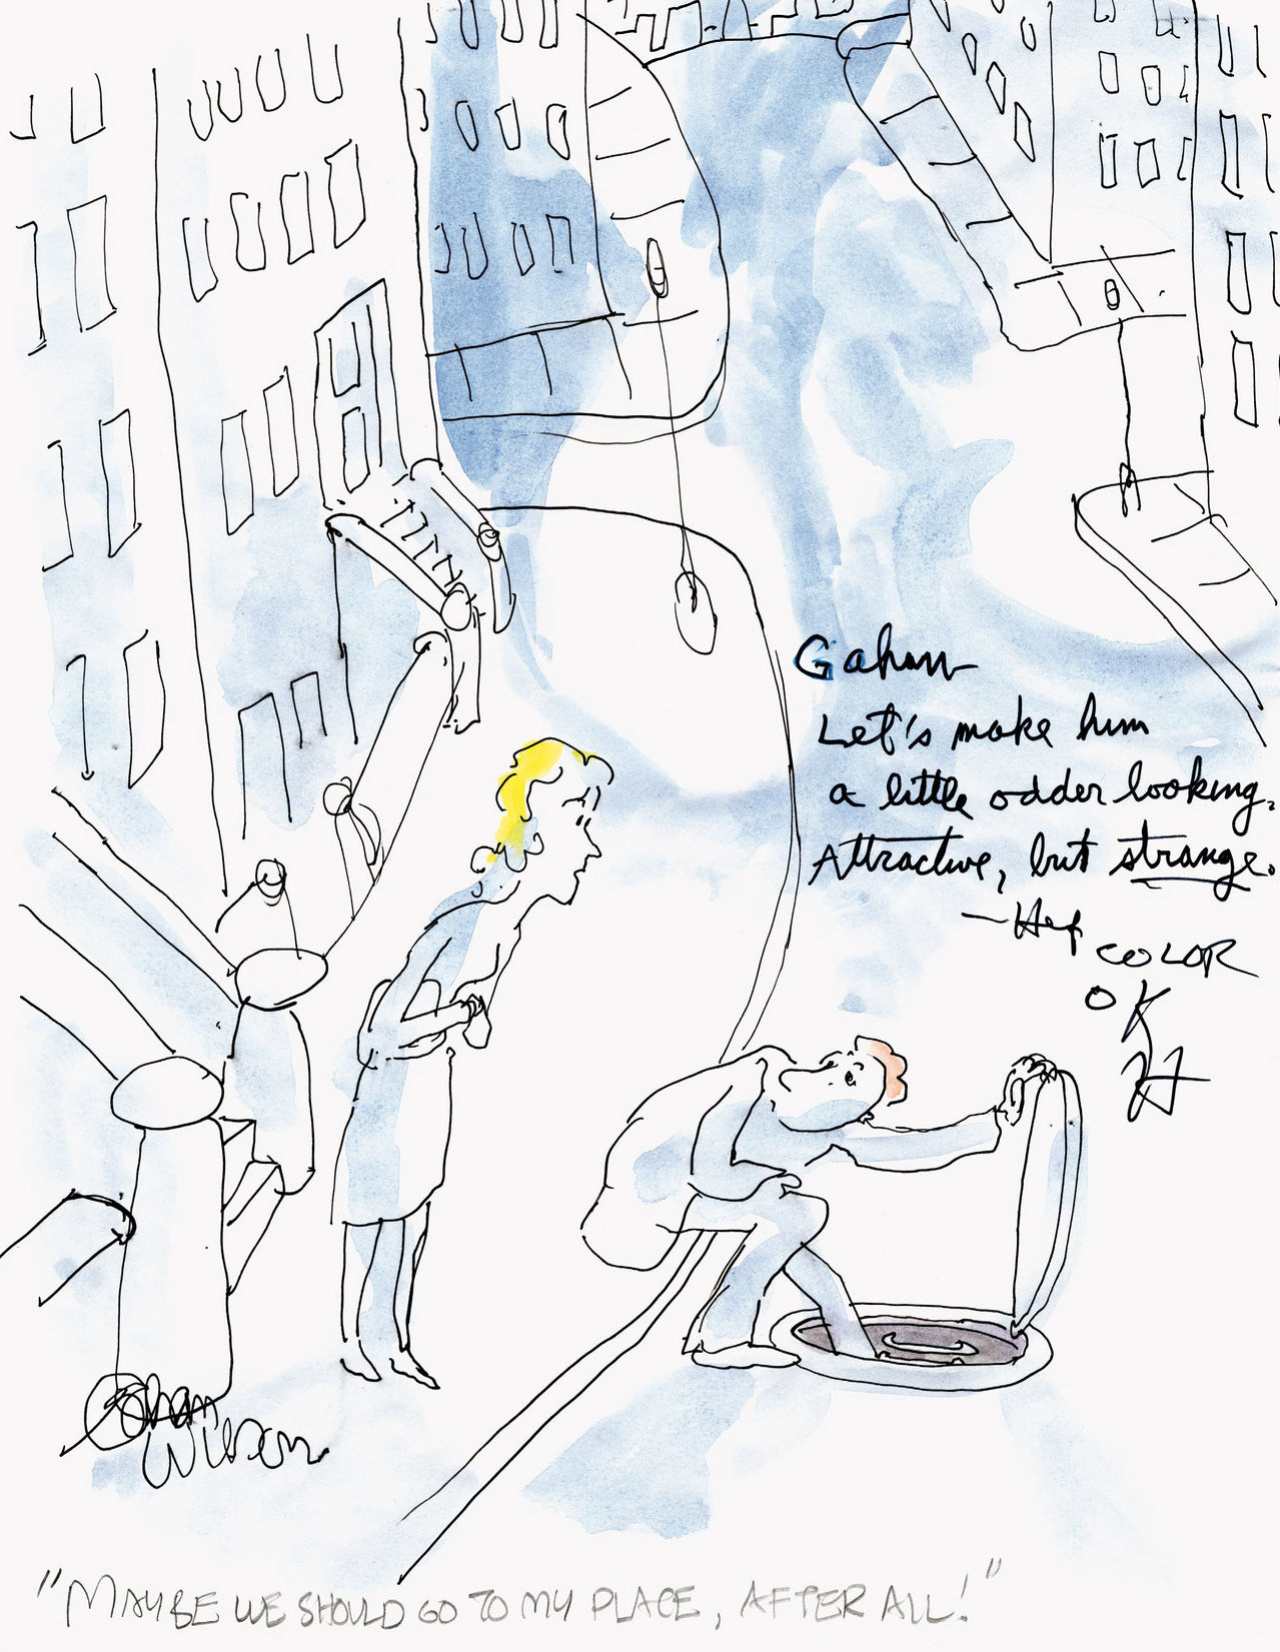 Gahan
Let's make him
a little odder looking.
Attractive, but strange.
—Hef
COLOR
OK
H
Gahan
Wilson
"MAYBE WE SHOULD GO TO MY PLACE, AFTER ALL!"